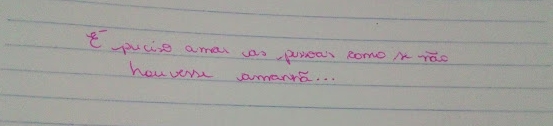 É preciso amar as pessoas como se não
houvesse amanhã...